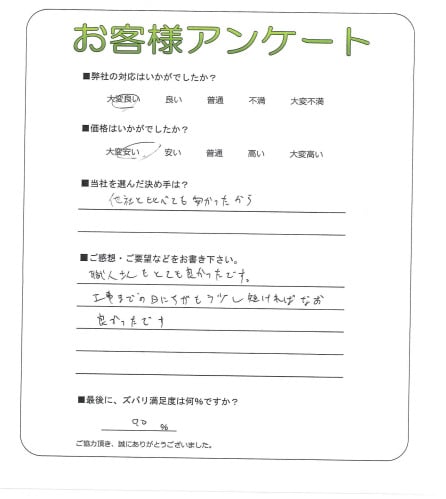 お客様アンケート
■弊社の対応はいかがでしたか？
大変良い 良い 普通 不満 大変不満
■価格はいかがでしたか？
大変安い 安い 普通 高い 大変高い
■当社を選んだ決め手は？
他社と比べても安かったから
■ご感想・ご要望などをお書き下さい。
職人さんもとても良かったです。
工事までの日にちがもう少し短ければなお
良かったです
■最後に、ズバリ満足度は何%ですか？
90 %
ご協力頂き、誠にありがとうございました。